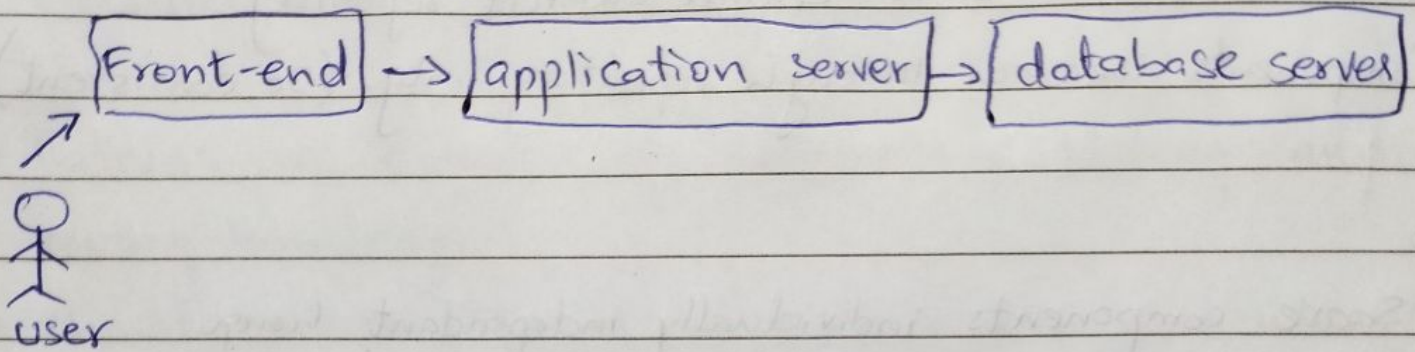 Front-end → application server → database server
user